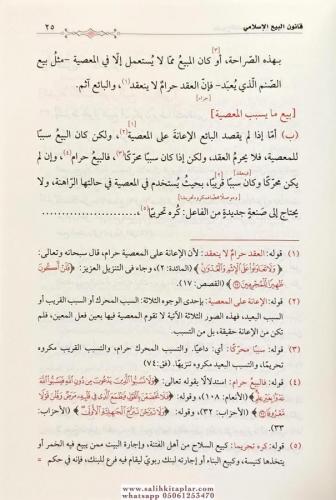 قانون البيع الإسلامي ٢٥
[٣]
بهذه الصّراحة، أو كان المبيع ممّا لا يُستعمل إلّا في المعصية -مثلُ بيع
الصّنم الّذي يُعبَد- فإنّ العقد حرامٌ لا ينعقد(١)، والبائع آثم.
[بيع ما يسبب المعصية]
(ب) أمّا إذا لم يقصد البائع الإعانة على المعصية(٢) ولكن كان البيعُ سببًا
للمعصية، فلا يحرم العقد، ولكن إذا كان سببًا محرّكًا(٣)، فالبيع حرام(٤)، وإن لم
يكن محرّكًا وكان سببًا قريبًا، بحيثُ يُستخدم في المعصية في حالتها الرّاهنة، ولا
يحتاج إلى صَنعةٍ جديدةٍ من الفاعل: كُره تحريمًا(٥)،
(١) قوله: العقد حرامٌ لا ينعقد: لأن الإعانة على المعصية حرام، قال سبحانه وتعالى:
﴿وَلَا تَعَاوَنُوا عَلَى الْإِثْمِ وَالْعُدْوَانِ﴾ (المائدة: ٢)، وجاء في التنزيل العزيز: ﴿فَلَنْ أَكُونَ
ظَهِيرًا لِلْمُجْرِمِينَ﴾ (القصص: ١٧).
(٢) قوله: الإعانة على المعصية: بإحدى الوجوه الثلاثة: السبب المحرك أو السبب القريب أو
السبب البعيد، فهذه الصور الثلاثة الآتية لا تقوم المعصية فيها بعين فعل المعين، فلم
تكن من الإعانة حقيقة، بل من التسبب.
(٣) قوله: سببًا محرّكًا: أي: داعيًا. والتسبب المحرك حرام، والتسبب القريب مكروه
تحريمًا، والسبب البعيد مكروه تنزيهًا. (فق: ٧٤)
(٤) قوله: فالبيع حرام: استدلالًا بقوله تعالى: ﴿وَلَا تَسُبُّوا الَّذِينَ يَدْعُونَ مِنْ دُونِ اللَّهِ فَيَسُبُّوا اللَّهَ
عَدْوًا بِغَيْرِ عِلْمٍ﴾ (الأنعام: ١٠٨)، وقوله: ﴿فَلَا تَخْضَعْنَ بِالْقَوْلِ فَيَطْمَعَ الَّذِي فِي قَلْبِهِ مَرَضٌ وَقُلْنَ قَوْلًا
مَعْرُوفًا﴾ (الأحزاب: ٣٢)، وقوله: ﴿وَلَا تَبَرَّجْنَ تَبَرُّجَ الْجَاهِلِيَّةِ الْأُولَى﴾ (الأحزاب:
٣٣.
(٥) قوله: كره تحريما: كبيع السلاح من أهل الفتنة، وإجارة البيت ممن يبيع فيه الخمر أو
يتخذها كنيسة، وكبيع البناء أو إجارته لبنك ربوي ليقام فيه فرع للبنك، فإنه في حكم =
www.salihkitaplar.com
whatsapp 05061253470